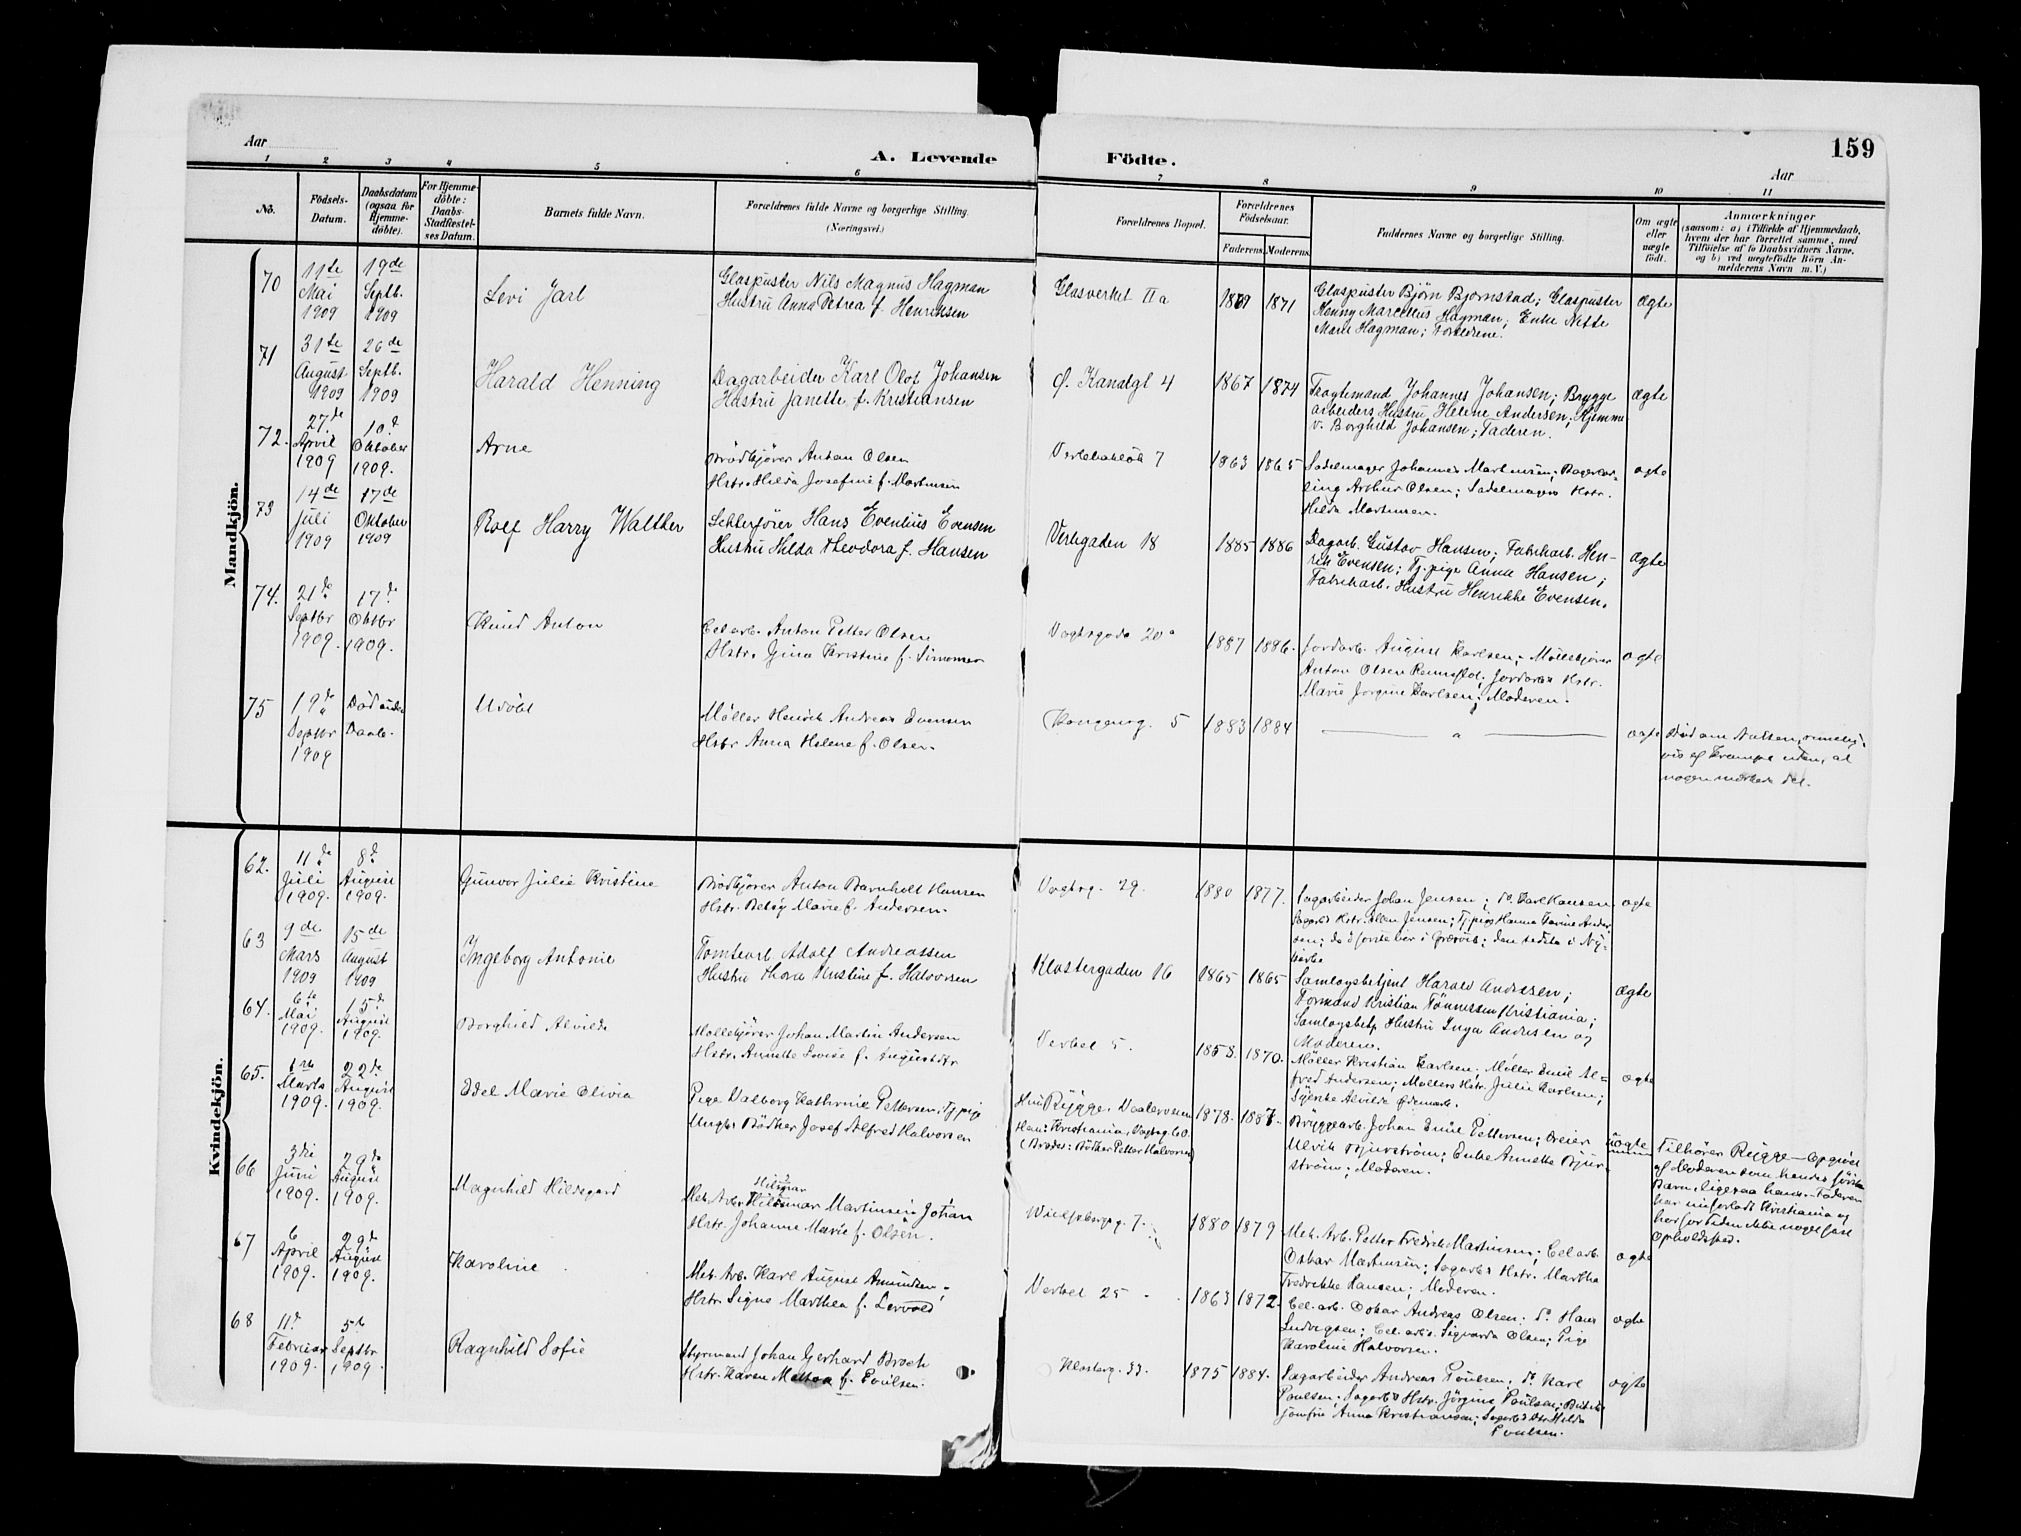 159
Aar
A. Levende
Födte.
Aar
1 2 3 4 5 6 7 8 9 10 11
No.
Födsels-
Datum.
Daabsdatum
(ogsaa for
Hjemme-
döbte).
For Hjemme-
döbte:
Daabs-
Stadfæstel-
ses Datum.
Barnets fulde Navn.
Forældrenes fulde Navne og borgerlige Stilling.
(Næringsvei.)
Forældrenes Bopæl.
Forældrenes
Födselsaar.
Faderens. Moderens.
Faddernes Navne og borgerlige Stilling.
Om ægte
eller
uægte
födt.
Anmærkninger
(saasom: a) i Tilfælde af Hjemmedaab,
hvem der har forrettet samme, med
Tilföielse af to Daabsvidners Navne,
og b) ved uægtefödte Börn An-
melderens Navn m. V.)
Mandkjön.
70
11te
Mai
1909
19de
Septb.
1909
Levi Jarl
Glaspuster Nils Magnus Hagman
Hustru Anna Petrea f. Henriksen
Glasverket IIa
1871
Glaspuster Bjørn Bjørnstad; Glaspuster
Henny Marcelius Hagman; Enke Nette
Marie Hagman; Forældrene.
ægte
71
31te
August
1909
26de
Septb.
1909
Harald Henning
Dagarbeider Karl Olof Johansen
Hustru Janette f. Kristiansen
Ø. Kanalgt 4
1867 1874
Fragtemand Johannes Johansen; Brygge
arbeiders Hustru Helene Andersen; Hjemme
v. Borghild Johansen; Faderen.
ægte
72.
27.de
April
1909
10.d
Oktober
1909.
Arne
Brødkjører Anton Olsen
Hstr. Hilda Josefine f. Martinsen
7
1863 1865
Sadelmager Johannes Martinsen; Bagerlær-
ling Arthur Olsen; Sadelmagers Hstr.
Hilda Martinsen.
ægte
73
14de
Juli
1909
17de
Oktober
1909
Rolf Harry Walther
Hans Evenlius Evensen
Hustru Hilda Theodora f. Hansen
Verlegaden 18
1885 1886
Dagarb. Gustav Hansen; Fabrikarb. Hen-
rik Evensen; Tj.pige Anna Hansen;
Fabrikarb. Hustru Henrikke Evensen.
ægte
74.
21de
Septbr
1909.
17de
Oktbr
1909.
Knud Anton
Cel.arb. Anton Petter Olsen
Hstr. Gina Kristine f. Simonsen
Vogtsgade 20a
1887 1886.
Jordarb. August Karlsen; Møllekjører
Anton Olsen; Jordarb. Hstr.
Marie Jorgine Karlsen; Moderen.
ægte
75
19de
Septbr
1909
Død uden
Daab.
Udöbt
Møller Henrik Andreas Evensen
Hstr Anna Helene f. Olsen.
Kongensg. 5
1883 1884
ægte
Død om Natten,
vis af Krampe uden, at
nogen mærkede det.
Kvindekjön.
62.
11de
Juli
1909.
8d
August
1909.
Gunvor Julie Kristine
Brödkjörer Anton Barnholt Hansen
Hstr. Betsy Marie f. Andersen.
Vogtsg. 29.
1880 1877.
Sagarbeider Johan Jensen; do. Karl Hansen
Sagarbs Hstr. Ellen Jensen; Tj.pige Hanna Farine Ander
sen; de 3 første bor i Græsvik; den sidste i Ny-
ægte
63
9de
Mars
1909
15de
August
1909
Ingeborg Antonie
Tomtearb Adolf Andreassen
Hustru Thora Kristine f. Halvorsen
Klostergaden 16
1865 1865
Samlagsbetjent Harald Andresen;
Formand Kristian Tønnessen Kristiania;
Samlagsbetj Hustru Inga Andresen og
Moderen.
ægte
64.
6te
Mai
1909.
15d
August
1909.
Borghild Alvilde
Møllekjører Johan Martin Andersen
Hstr. Annette Lovise f. Augustdtr
Verket 5.
1858. 1870.
Møller Kristian Karlsen; Møller Emil Al-
fred Andersen; Møllers Hstr. Julie Karlsen;
Alvilde
ægte
65.
1ste
Marts
1909.
22de
August
1909.
Edel Marie Olivia
Pige Valborg Kathrine Pettersen, Tj.pige
Ungk. Bødker Josef Alfred Halvorsen
Hun: Rygge, Vaalervasen
Han: Kristiania, Vogtsg 60.
(Brodes: Bödker Petter Halvorsen)
1878. 1887.
Bryggearb. Johan Emil Pettersen; Dreier
Ulrik Bjurström; Enke Annette Bjur-
ström; Moderen.
uægte
Tilhører Rygge — Opgivet
af Moderen som hendes første
Barn, ligesaa hans. Faderen
har nu forladt Kristiania og
har for Tiden ikke noget fast
Opholdssted.
66
3die
Juni
1909.
29de
August
1909.
Magnhild Hildegard
Hilmar
Mek. Arb. Martinsen Johan
Hstr. Johanne Marie f. Olsen.
7.
1880 1879
Mek. Arb. Petter Fredrik Martinsen; Cel.arb.
Oskar Martinsen; Sagarbs Hstr. Martha
Fredrikke Hansen; Moderen.
ægte
67
6
April
1909.
29de
August
1909.
Karoline
Mek. Arb. Karl August Amundsen
Hstr. Signe Marthea f. Lervold
Verket 25
1863 1872.
Cel. arb. Oskar Andreas Olsen; do Hans
Ludvigsen; Cel. arbs. Sigvarda Olsen; Pige
Karoline Halvorsen.
ægte
68
11d
Februar
1909.
5te
Septbr
1909.
Ragnhild Sofie
Styrmand Johan Gerhard Broch
Hstr. Karen Mattea f. Poulsen.
Klosterg. 33.
1875 1884.
Sagarbeider Andreas Poulsen; do Karl
Poulsen; Sagarbs Hstr. Jörgine Poulsen; Butik-
jomfru Anna Kristiansen; Sagarbs Dtr. Hilda
Poulsen.
ægte